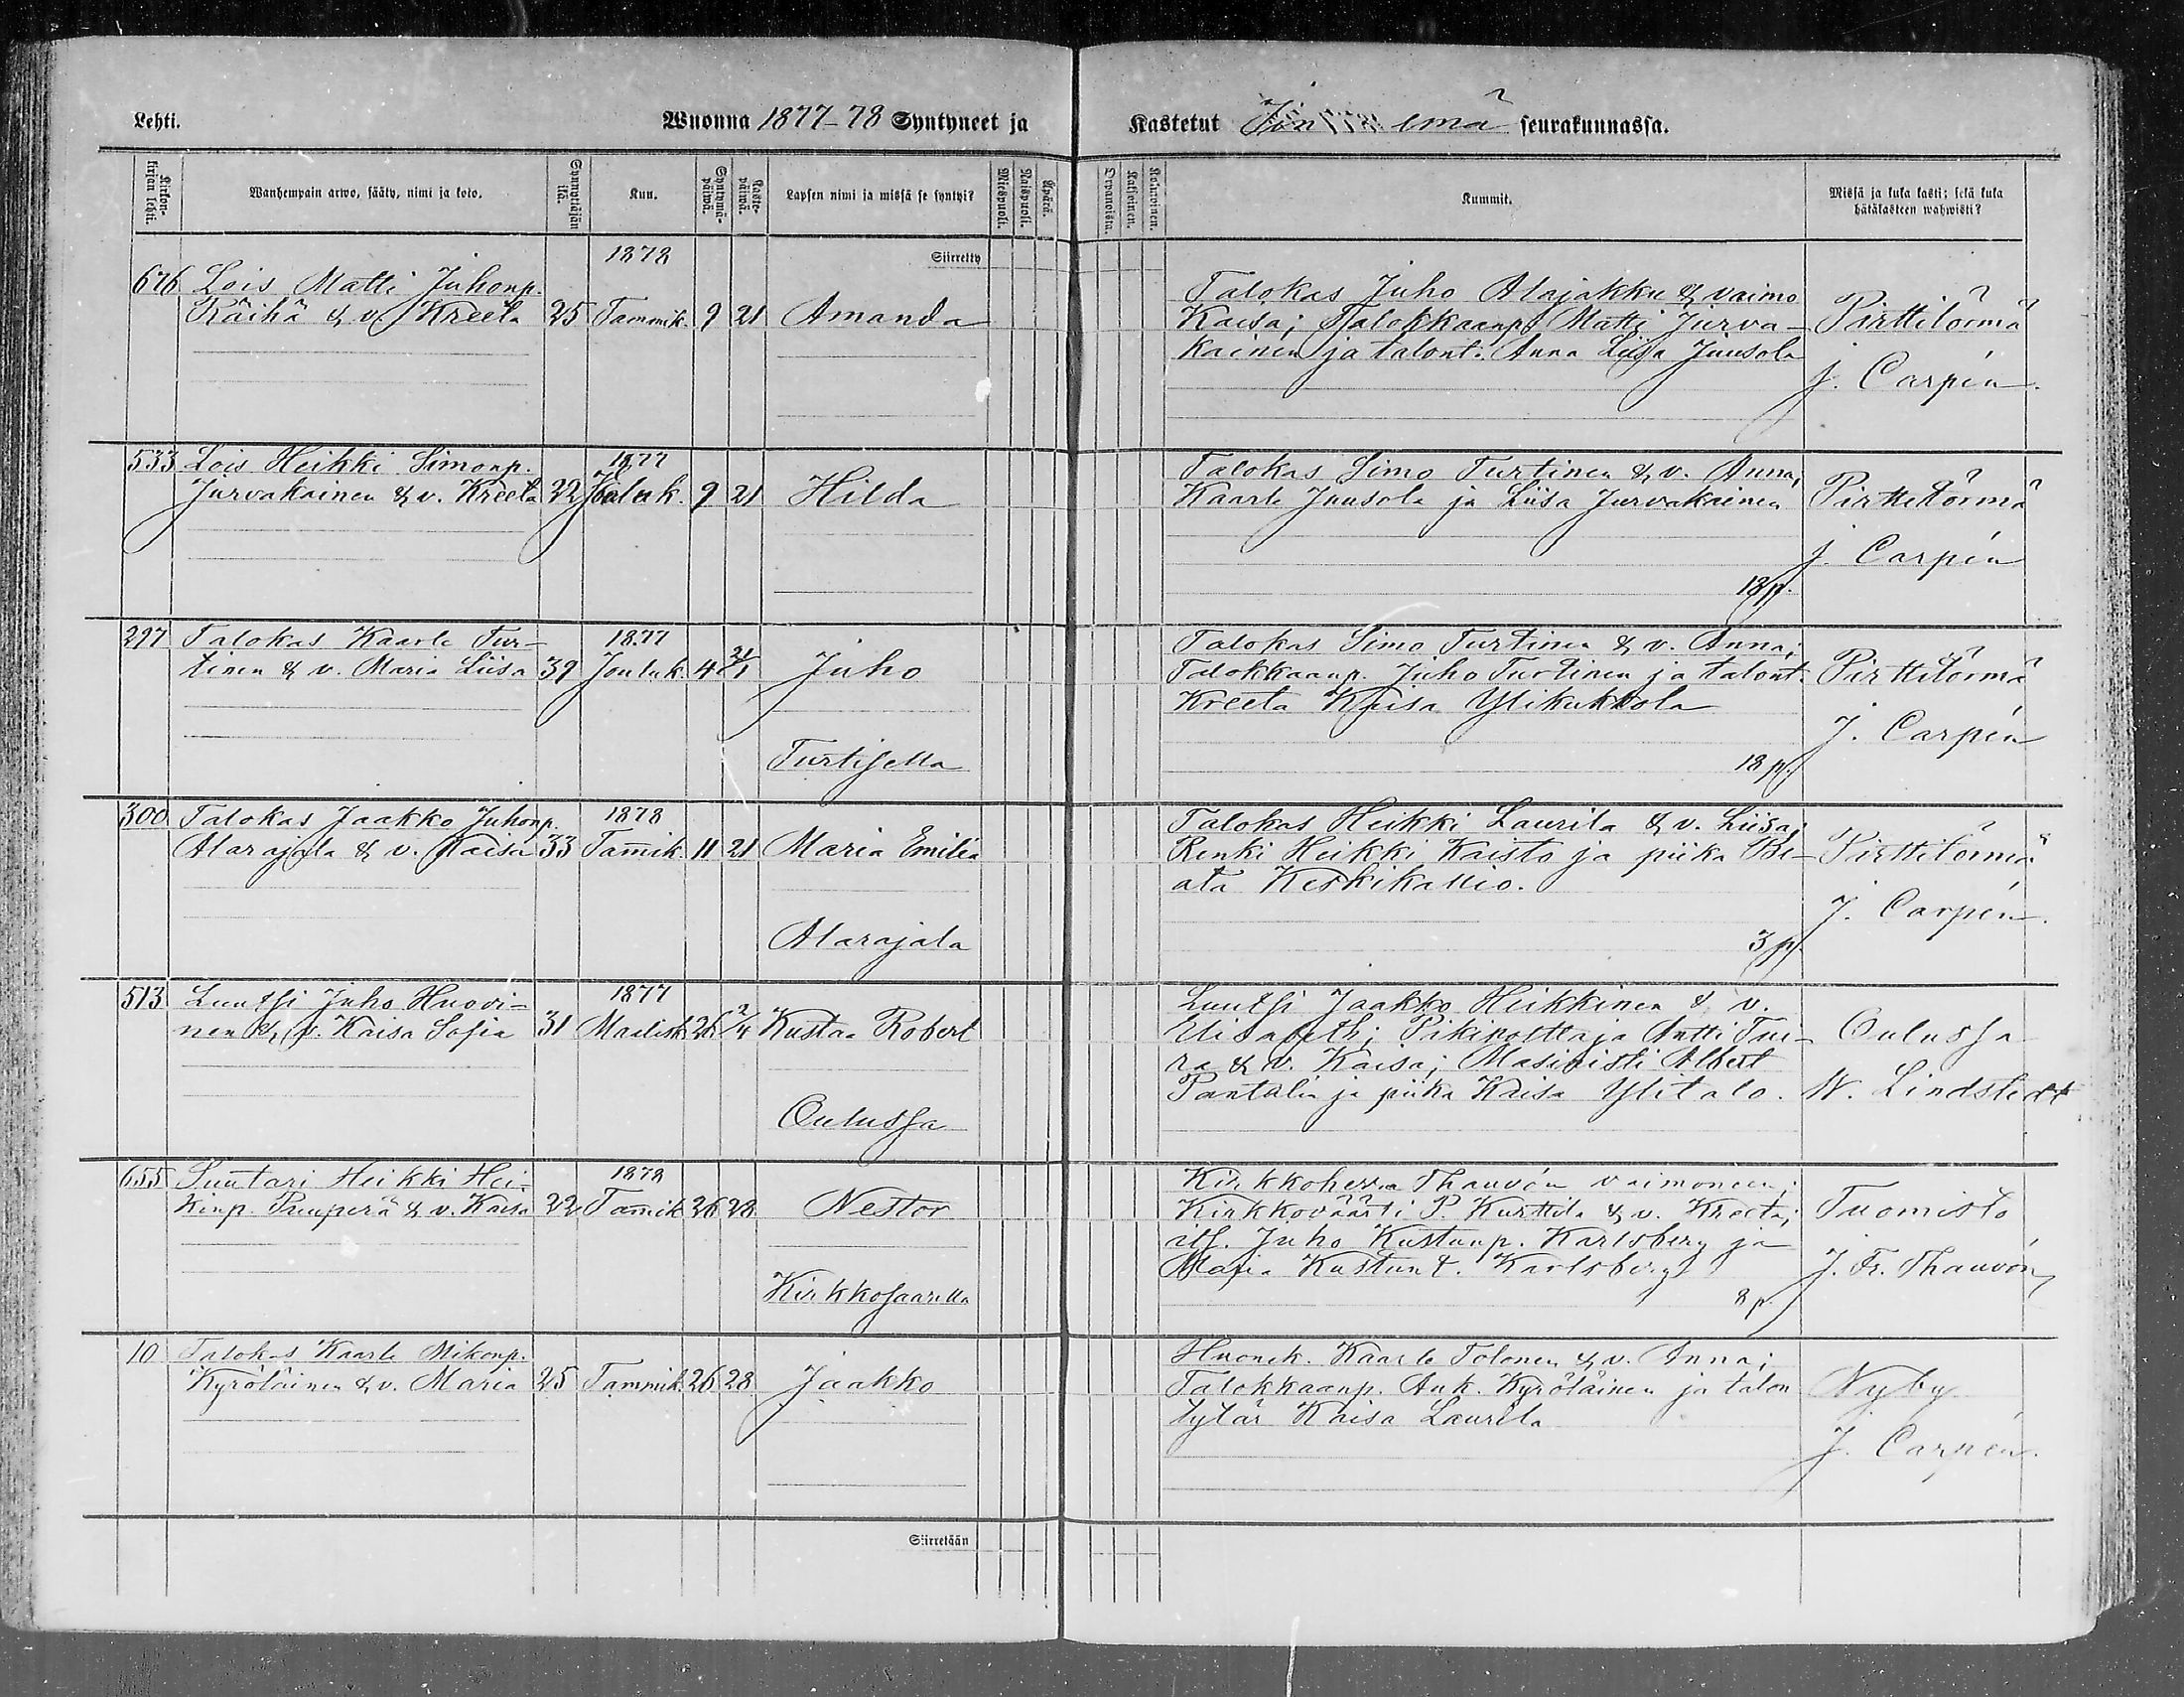 Lehti. Wuonna 1877-78 Syntyneet ja Kastetut Iin emä seurakunnassa.
Kirkonkirjan lehti. Wanhempain arwo, sääty, nimi ja koto. Synnyttäjän ikä. Kuu. Syntymäpäiwä. Kastepäiwä. Lapsen nimi ja missä se syntyi? Miespuoli. Naispuoli. Äpärä. Orpanoista. Kaksoinen. Kolmoinen. Kummit. Missä ja kuka kasti; sekä kuka hätäkasteen wahwisti?
1878 Siirretty
676 Lois Matti Juhonp.
Räihä & v. Kreeta 25 Tammik. 9 21 Amanda
Talokas Juho Alajakku & vaimo
Kaisa; Talokkaanp. Matti Jurva-
kainen ja talont. Anna Liisa Juusola
Pirttitörmä
J. Carpén.
533 Lois Heikki Simonp. 1877
Jurvakainen & v. Kreeta 22 Jouluk. 9 21 Hilda
Talokas Simo Turtinen & v. Anna,
Kaarle Juusola ja Liisa Jurvakainen
18 p.
Pirttitörmä
J. Carpén
297 Talokas Kaarle Tur- 1877
tinen & v. Maria Liisa 39 Jouluk. 4 21/1 Juho
Turtisella
Talokas Simo Turtinen & v. Anna;
Talokkaanp. Juho Turtinen ja talont.
Kreeta Kaisa Ylikukkola
18 p.
Pirttitörmä
J. Carpén
300 Talokas Jaakko Juhonp. 1878
Alarajala & v. Kaisa 33 Tam̄ik. 11 21 Maria Emilia
Alarajala
Talokas Heikki Laurila & v. Liisa;
Renki Heikki Kaisto ja piika Be-
ata Keskikallio.
3 p.
Pirttitörmä
J. Carpén.
513 Luutsi Juho Huovi- 1877
nen & v. Kaisa Sofia 31 Maalisk. 26 2/4 Kustaa Robert
Oulussa
Luutsi Jaakko Heikkinen & v.
Elisabeth; Pikipolttaja Antti Tui-
ra & v. Kaisa; Masinisti Albert
Pantalin ja piika Kaisa Ylitalo.
Oulussa
W. Lindstedt
655 Suutari Heikki Hei- 1878
kinp. Puuperä & v. Kaisa 22 Tam̄ik. 26 28 Nestor
Kirkkosaarella
Kirkkoherra Thauvón vaimoneen;
Kirkkoväärti P. Kurttila & v. Kreeta;
its. Juho Kustaap. Karlsberg ja
Maria Kustaat. Karlsberg
8 p.
Tuomisto
J. Fr. Thauvón
10 Talokas Kaarle Mikonp.
Kyröläinen & v. Maria 25 Tammik. 26 28 Jaakko
Huonek. Kaarle Tolonen & v. Anna;
Talokkaanp. Auk. Kyröläinen ja talon
tytär Kaisa Laurila
Nyby
J. Carpén.
Siirretään